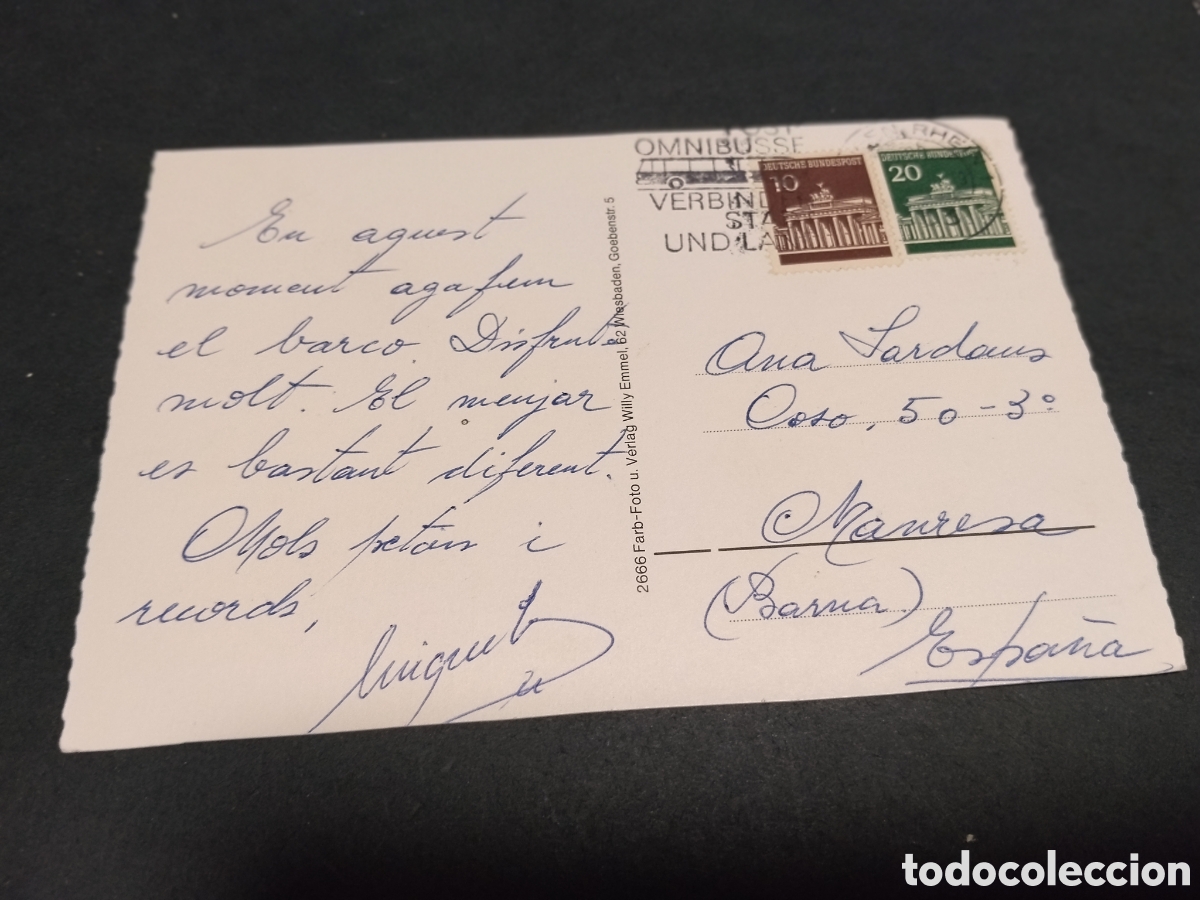 En aquest
moment agafem
el barco. Disfruto
molt. El menjar
es bastant diferent.
Mols petons i
records,
Miquel
2666 Farb-Foto u. Verlag Willy Emmel, 62 Wiesbaden, Goebenstr. 5
POST
OMNIBUSSE
VERBINDE
STA
UND LA
DEUTSCHE BUNDESPOST
10
DEUTSCHE BUNDES
20
Ana Sardans
Coso, 50-3º
Manresa
(Barna)
España
todocoleccion